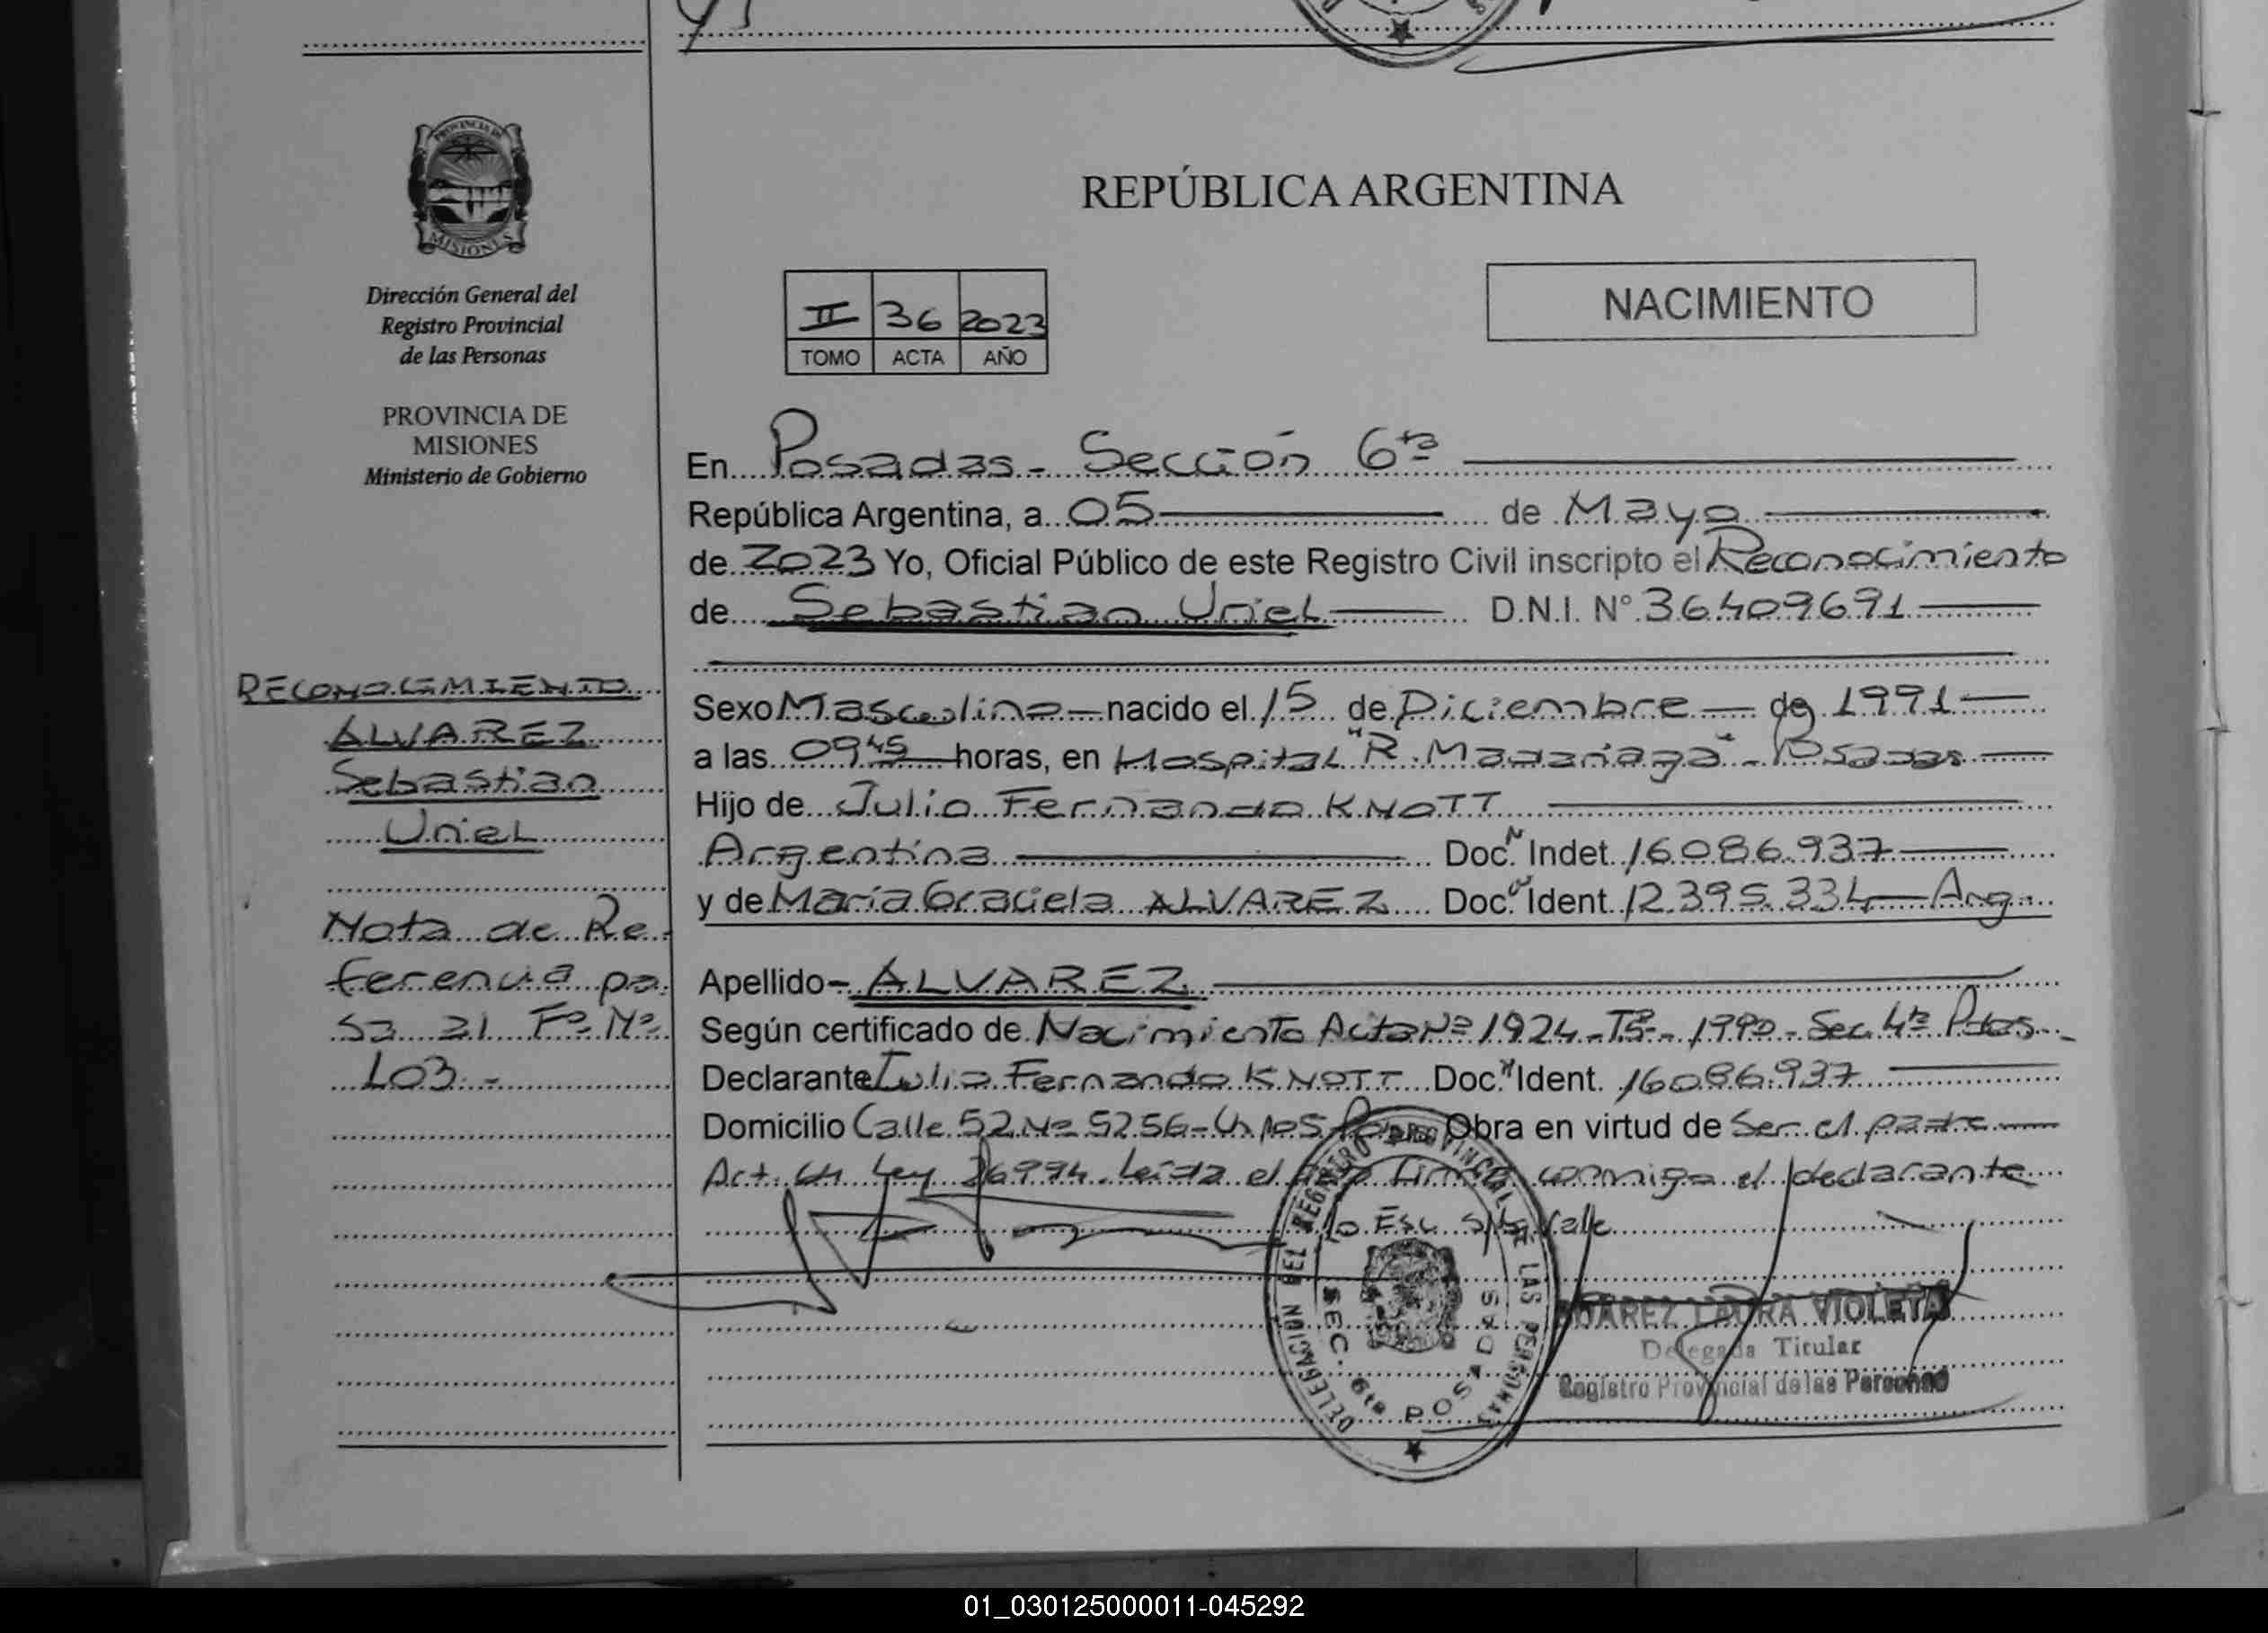 PROVINCIA DE
MISIONES
Dirección General del
Registro Provincial
de las Personas
PROVINCIA DE
MISIONES
Ministerio de Gobierno
RECONOCIMIENTO
ALVAREZ
Sebastian
Uriel
Nota de Re
ferencia pa
sa al Fº Nº
103.-
REPÚBLICA ARGENTINA
II 36 2023
TOMO ACTA AÑO
NACIMIENTO
En Posadas - Sección 6ta
República Argentina, a 05 de Mayo
de 2023 Yo, Oficial Público de este Registro Civil inscripto el Reconocimiento
de Sebastian Uriel D.N.I. N° 36409691
Sexo Masculino nacido el 15 de Diciembre de 1991
a las 09 45 horas, en Hospital "R. Madariaga" - Posadas
Hijo de Julio Fernando KNOTT
Argentina Doc. N Indet. 16.086.937
y de María Graciela ALVAREZ Doc. Ident. 12.395.334 Arg.
Apellido - ALVAREZ
Según certificado de Nacimiento Acta Nº 1924 - 1990 - Sec. 4ta Pdas
Declarante Julio Fernando KNOTT Doc. N Ident. 16086.937
Domicilio Calle 52 Nº 5256 - Obra en virtud de Ser el padre
Art. Ley 26994. Leída el firma conmigo el declarante
Vale
DELEGACION DEL REGISTRO PROVINCIAL DE LAS PERSONAS
SEC. 6ta POSADAS
LAURA VIOLETA
Delegada Titular
Registro Provincial de las Personas
01_030125000011-045292